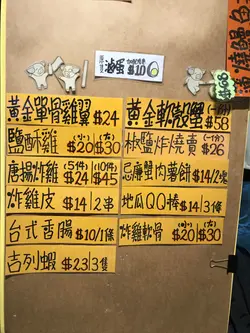 滷蛋 $10
黃金單骨雞翼 $24
黃金軟殼蟹(一份) $58
鹽酥雞 (小)$20 (大)$30
椒鹽炸燒賣(一份) $26
唐揚炸雞 (5件)$24 (10件)$45
忌廉蟹肉薯餅 $14/2塊
炸雞皮 $14|2串
地瓜QQ棒 $14|3條
台式香腸 $10/1條
炸雞軟骨 (小)$20 (大)$30
吉列蝦 $23|3隻
$68